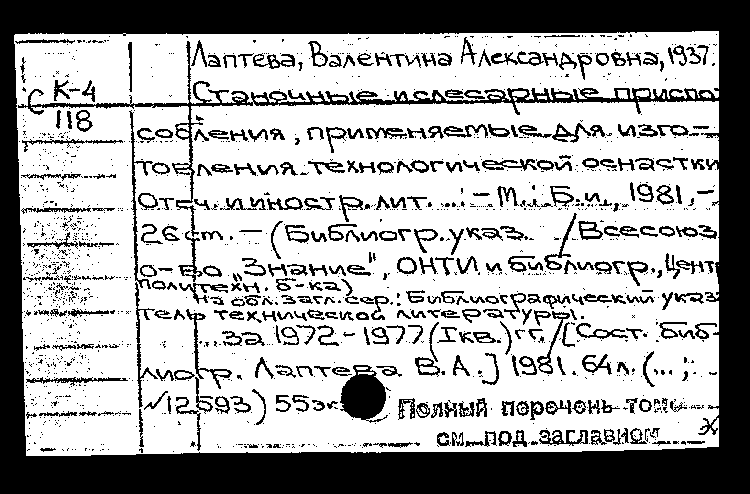 Лаптева, Валентина Александровна, 1937.
С К-4
118
Станочные и слесарные приспо-
собления, применяемые для изго-
товления технологической оснастки
Отеч. и иностр. лит. ... : - М.: Б.и., 1981, -
26 cm. - (Библиогр. указ. / Всесоюз.
о-во „Знание", ОНТИ и библиогр., Центр.
политехн. б-ка)
На обл. загл. сер.: Библиографический указа
тель технической литературы.
... за 1972-1977 (I кв.) гг. / [Сост. биб-
лиогр. Лаптева В. А.] 1981. 64 л. (... ;
№12593) 55 эк
Полный перечень томо
см. под заглавном